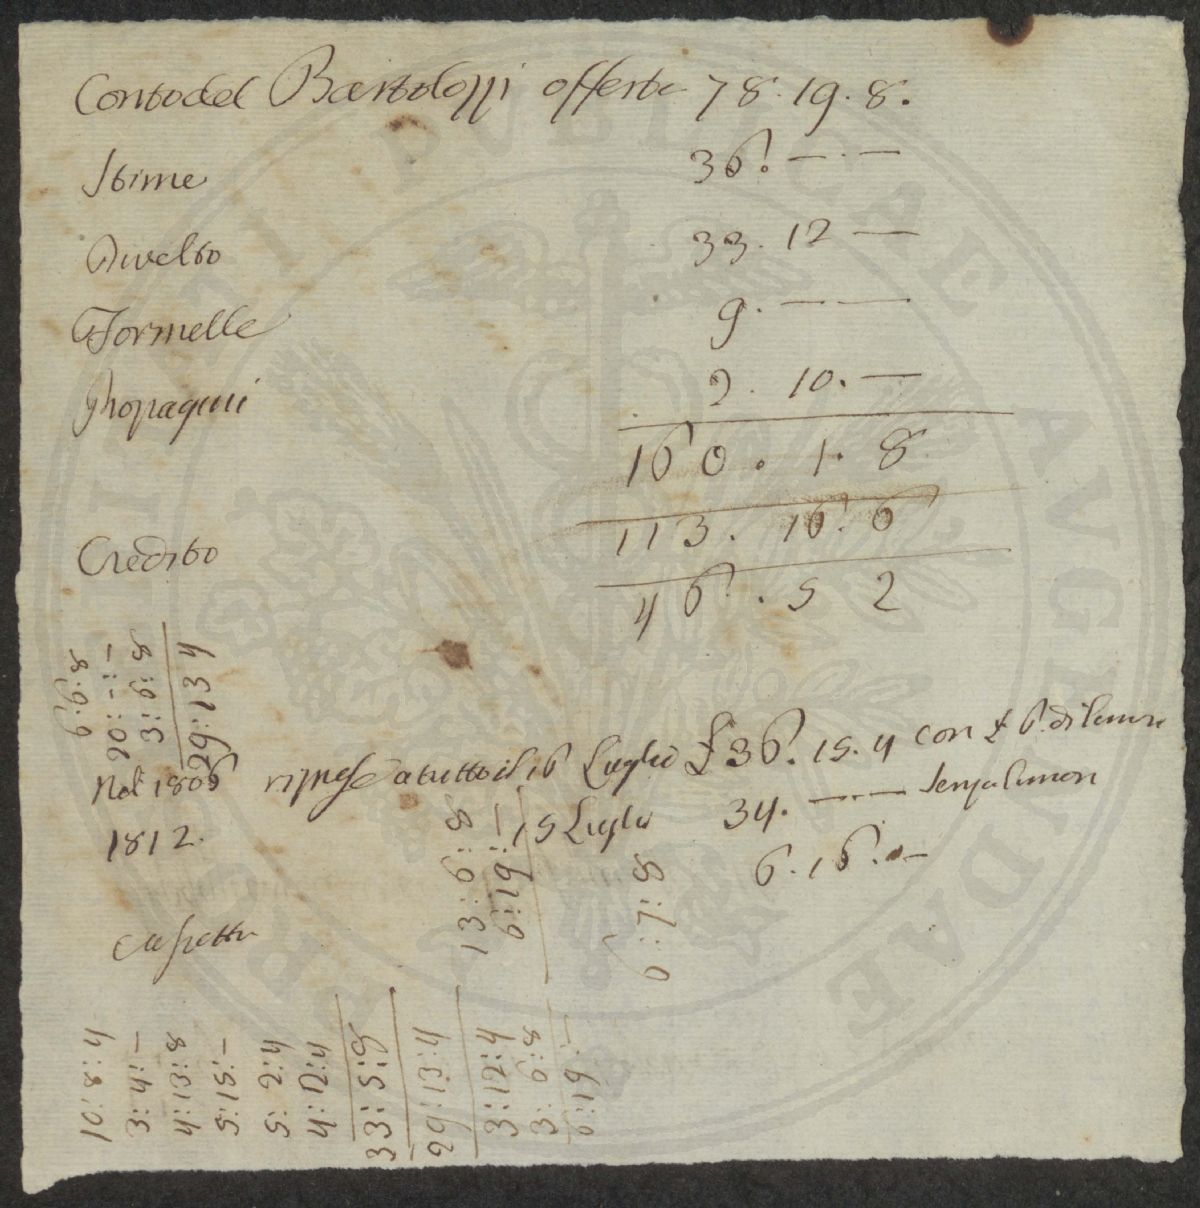 Conto del Bartolozzi offerta 78. 19. 8.
Stime 36. — . —
Divelto 33. 12 —
Formelle 9. — —
Propagini 2. 10. —
160. 1. 8
113. 16. 6
Credito 46. 5 2
6:6:8
20: -:-
3: 6: 8
29:13 4
Nel 1806 riprese a tutto il 16 Luglio £ 36. 15. 4 con £ 6. di limoni
1812. 15 Luglio 34. — . — senza limoni
6. 16. —
13:6:8
6:19:-
6:7:8
10:8:4
3:4:-
4:13:8
5:15:-
5:2:4
4:12:4
33:5:8
29:13:4
3:12:4
3:6:8
6:19:-
PVBLICAE AVGENDAE